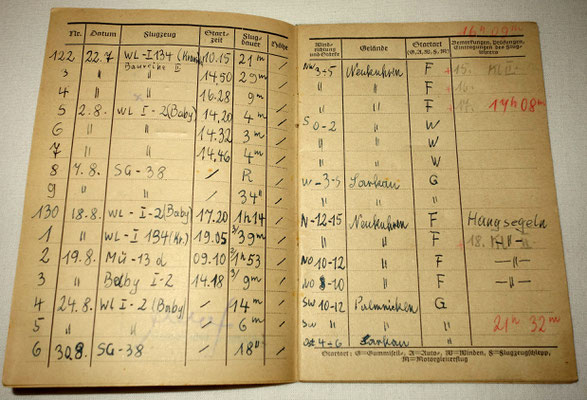 Nr. Datum Flugzeug Startzeit Flugdauer Höhe
122 22.7 WL-I 134 (Kranich 10.15 21m /
Baureihe II
3 " " 14.50 29m /
4 " " 16.28 9m /
5 2.8. WL I-2 (Baby) 14.20 4m /
6 " " 14.32 3m /
7 " " 14.46 4m /
8 7.8. SG-38 / R /
9 " " / 34" /
130 18.8. WL-I-2 (Baby) 17.20 1h14 /
1 " WL-I 134 (Kr.) 19.05 39m /
2 19.8. Mü-13d 09.10 1h53 /
3 " Baby I-2 14.18 9m /
4 24.8. WL I-2 (Baby) / 14m /
5 " " / 6m /
6 30.8. SG-38 / 18" /
Windrichtung und -Stärke Gelände Startart (G, A, W, F, M) Bemerkungen, Prüfungen, Eintragungen des Fluglehrers
NW 3+5 Neukuhren F + 15.
" " F + 16.
" " F + 17. 17h 08m
S 0-2 " W
" " W
" " W
W-3-5 Sarkau G
" " "
N-12-15 Neukuhren F Hangsegeln
" " F + 18. -"-
NO 10-12 " F -"-
NO 8-10 " F -"-
SW 10-12 Palmnicken G
SW " " " 21h 32m
Ost 4-6 Sarkau "
Startart: G=Gummiseil-, A=Auto-, W=Winden, F=Flugzeugschlepp,
M=Motorgleiterflug